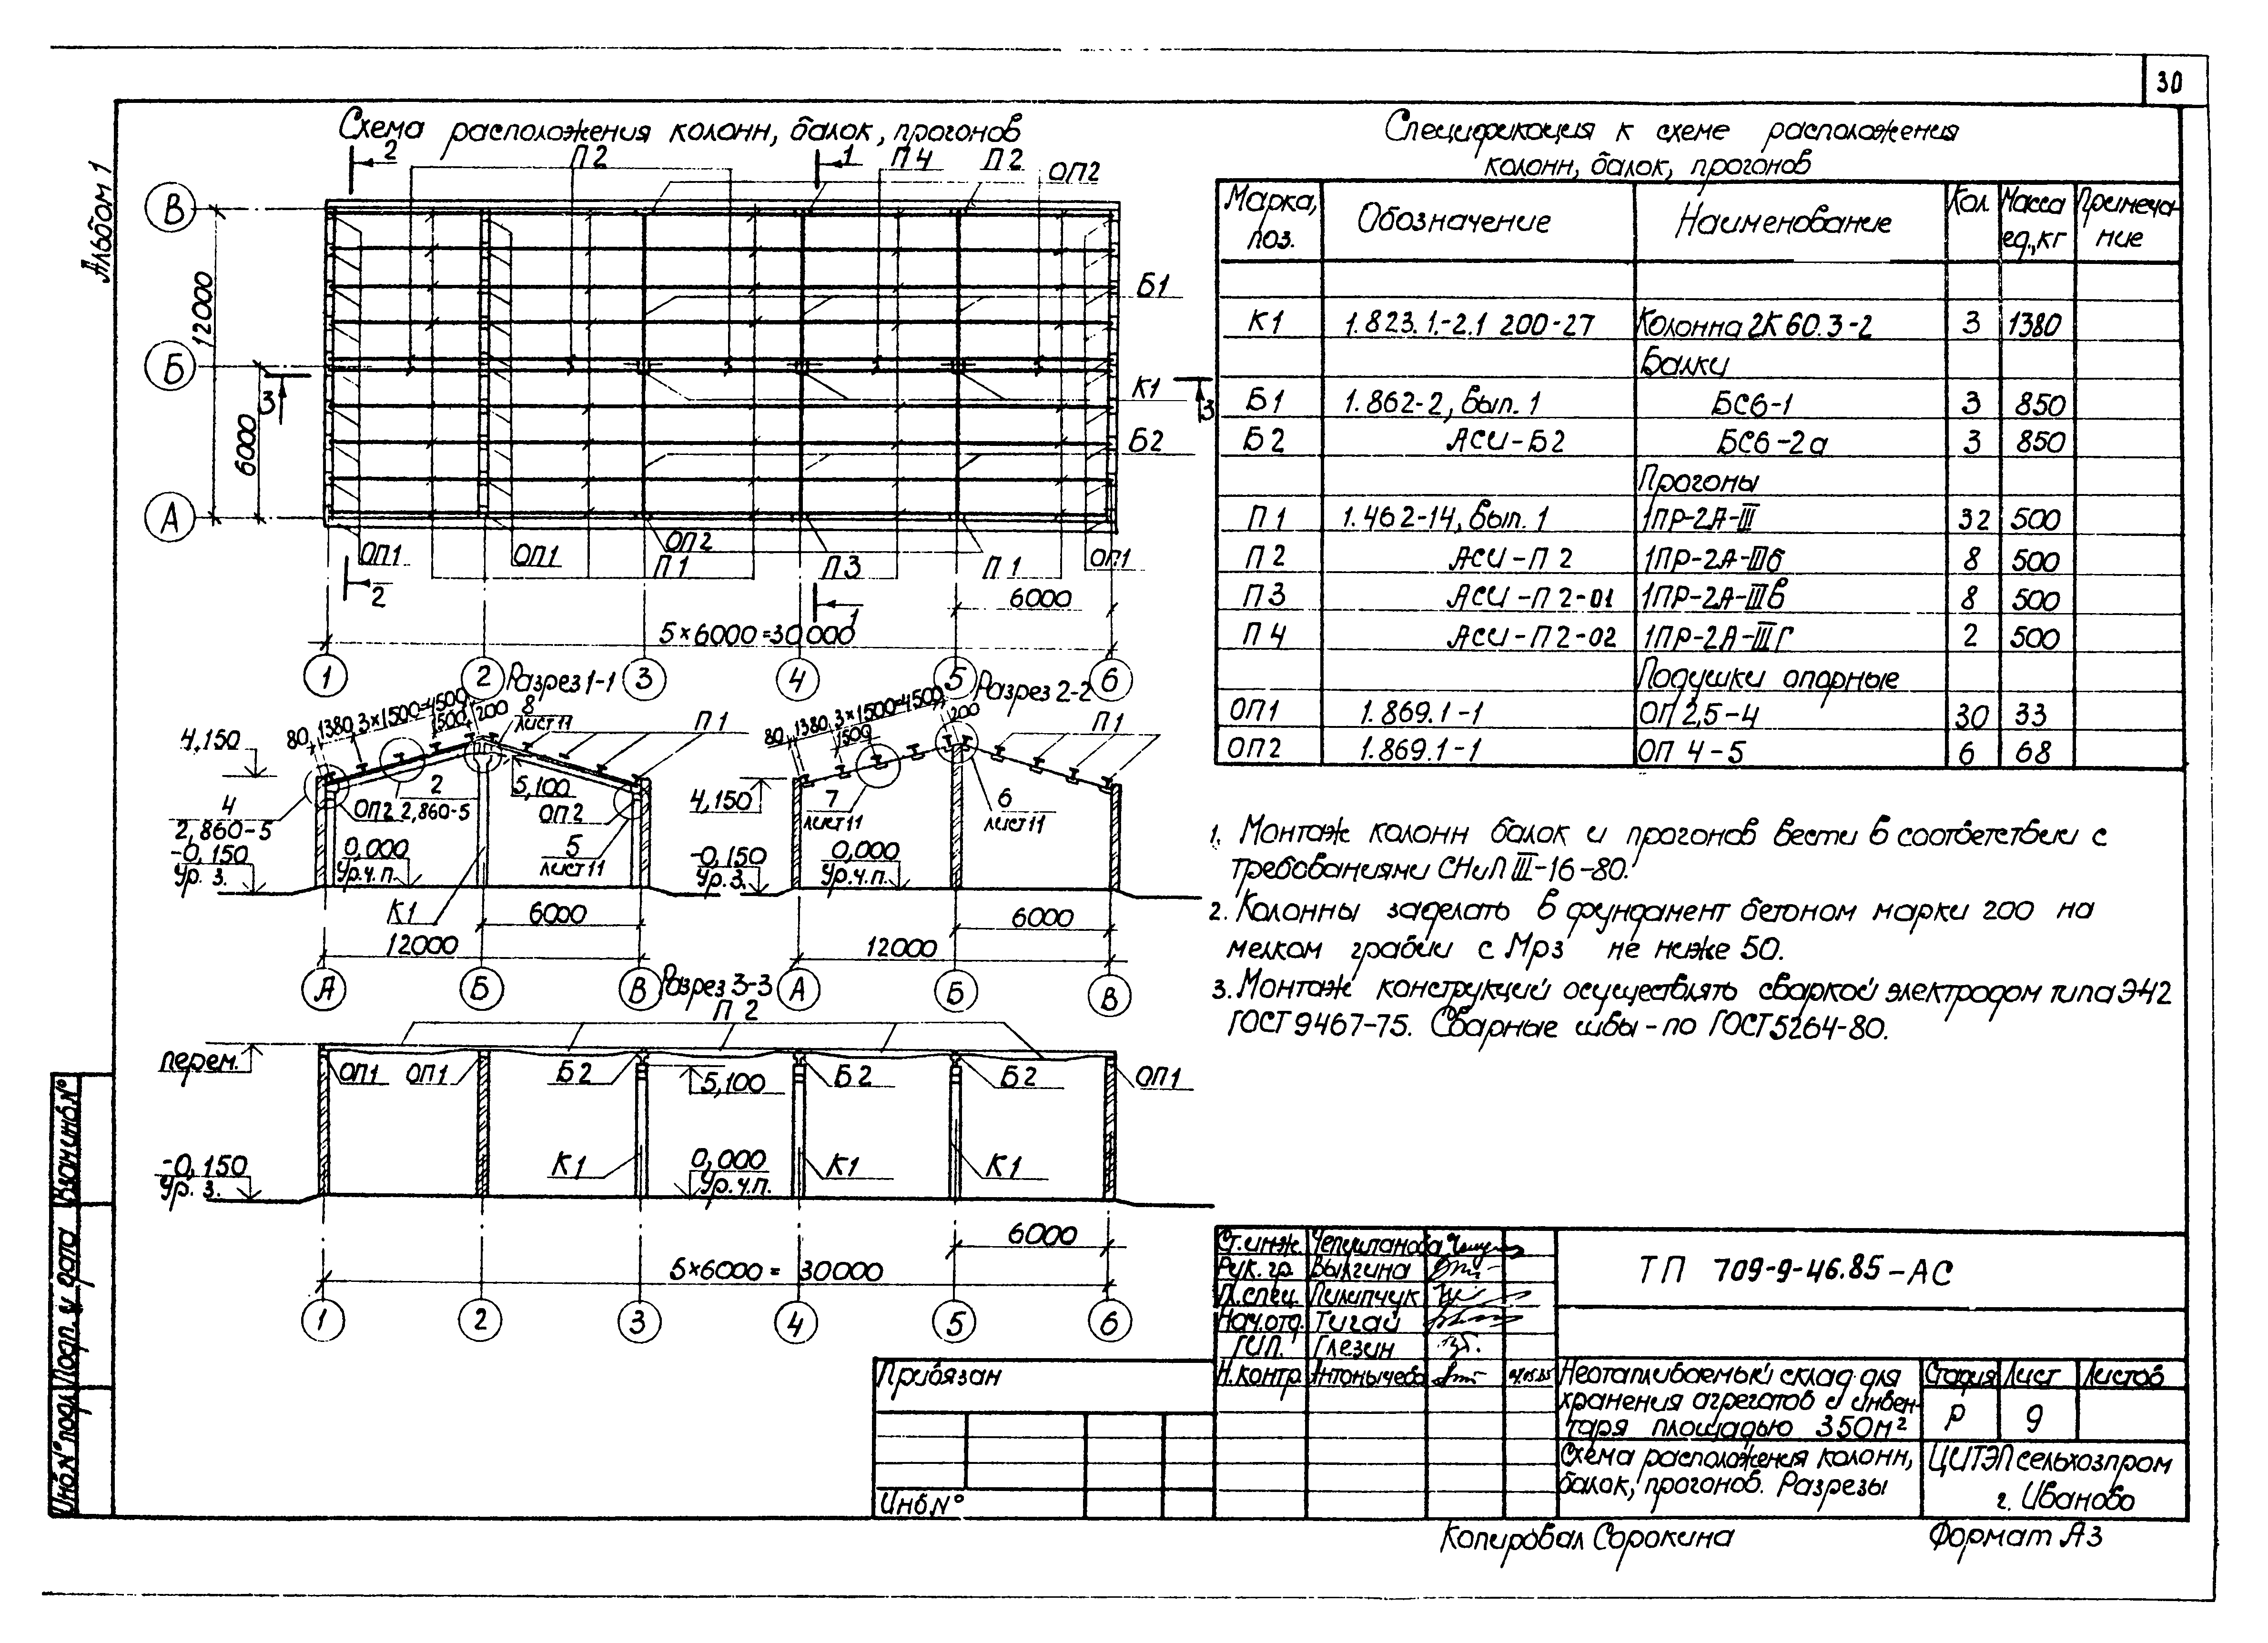 30
Альбом 1
Схема расположения колонн, балок, прогонов
2
П2
1
П4
П2
ОП2
В
Б
А
12000
6000
3
3
Б1
К1
Б2
ОП1
ОП1
ОП2
П1
П3
П1
ОП1
2
1
6000
5×6000=30000
1
2
3
4
5
6
Разрез 1-1
80
1380
3×1500=4500
1500
200
8
лист 11
П1
4,150
4
2,860-5
ОП2
2
2,860-5
5,100
ОП2
5
лист 11
-0,150
Ур. з.
0,000
Ур.ч.п.
К1
6000
12000
А
Б
В
Разрез 2-2
80
1380
3×1500=4500
1500
200
П1
4,150
7
лист 11
6
лист 11
-0,150
Ур. з.
0,000
Ур.ч.п.
6000
12000
А
Б
В
Разрез 3-3
П2
перем.
ОП1
ОП1
Б2
5,100
Б2
Б2
ОП1
-0,150
Ур. з.
К1
0,000
Ур.ч.п.
К1
К1
6000
5×6000= 30000
1
2
3
4
5
6
Спецификация к схеме расположения
колонн, балок, прогонов
Марка, поз. Обозначение Наименование Кол Масса ед.,кг Примечание
К1 1.823.1.-2.1 200-27 Колонна 2К 60.3-2 3 1380
Балки
Б1 1.862-2, вып. 1 БС6-1 3 850
Б2 АСИ-Б2 БС6-2а 3 850
Прогоны
П1 1.462-14, вып. 1 1ПР-2А-III 32 500
П2 АСИ-П2 1ПР-2А-IIIб 8 500
П3 АСИ-П2-01 1ПР-2А-IIIв 8 500
П4 АСИ-П2-02 1ПР-2А-IIIг 2 500
Подушки опорные
ОП1 1.869.1-1 ОП 2,5-4 30 33
ОП2 1.869.1-1 ОП 4-5 6 68
1. Монтаж колонн балок и прогонов вести в соответствии с
требованиями СНиП III-16-80.
2. Колонны заделать в фундамент бетоном марки 200 на
мелком гравии с Мрз не ниже 50.
3. Монтаж конструкций осуществлять сваркой электродом типа Э42
ГОСТ 9467-75. Сварные швы - по ГОСТ 5264-80.
Ст. инж. Чепуштанова
Рук. гр. Вылгина
Гл. спец. Пилипчук
Нач. отд. Тигай
ГИП. Глезин
Н. контр. Антонычева
ТП 709-9-46.85-АС
Неотапливаемый склад для
хранения агрегатов и инвен-
таря площадью 350м²
Стадия Лист Листов
Р 9
Схема расположения колонн,
балок, прогонов. Разрезы
ЦИТЭПсельхозпром
г. Иваново
Привязан
Инв.N°
Копировал Сорокина
Формат А3
Взам.инв.N°
Подп. и дата
Инв.N° подл.